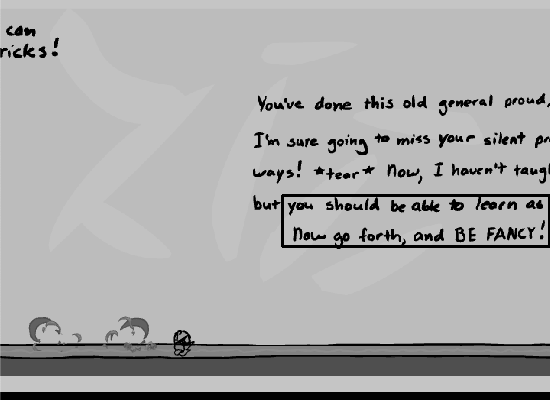 can
ricks!
You've done this old general proud,
I'm sure going to miss your silent pr
ways! *tear* Now, I haven't taug
but you should be able to learn as
Now go forth, and BE FANCY!